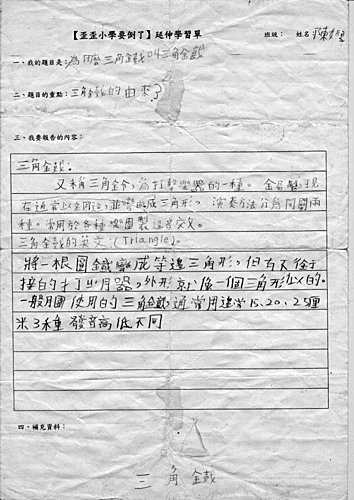 【歪歪小學要倒了】延伸學習單
班級： 姓名
一、我的題目是：為什麼三角鐵叫三角鐵
二、題目的重點：三角鐵的由來？
三、我要報告的內容：
三角鐵：
又稱三角鈴，為打擊樂器的一種。
在通常以
種。常用於各種樂團製造音效。
三角鐵的英文：(Triangle)。
將一根圓鐵彎成等邊三角形，但有不
接的打擊月器，外形就像一個三角形似的。
一般月團使用的三角鐵通常用邊常15、20、25厘
米3種 發音高低不同
四、補充資料：
三角鐵